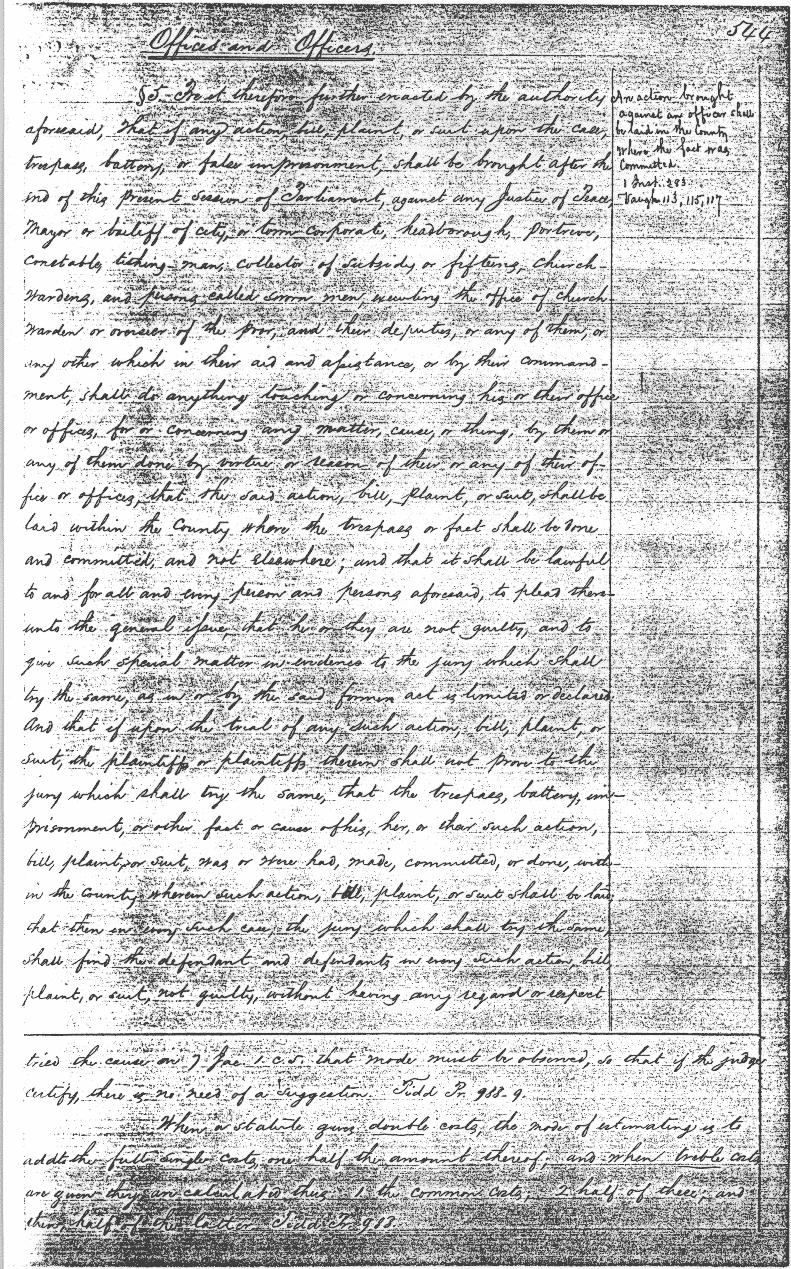 544
Offices and Officers.
§5. Be it therefore further enacted by the authority
aforesaid, That if any action, bill, plaint, or suit upon the case,
trespass, battery, or false imprisonment, shall be brought after the
end of this present Session of Parliament, against any Justice of Peace,
Mayor or bailiff of city, or town corporate, headborough, Portreve,
Constable, tithing-man, collector of subsidy or fifteens, church-
wardens, and persons called sworn men, executing the office of church-
warden or overseer of the poor, and their deputies, or any of them, or
any other which in their aid and assistance, or by their command-
ment, shall do anything touching or concerning his or their office
or offices, for or concerning any matter, cause, or thing, by them or
any of them done by virtue or reason of their or any of their of-
fice or offices, that the said action, bill, plaint, or suit, shall be
laid within the County where the trespass or fact shall be done
and committed, and not elsewhere; and that it shall be lawful
to and for all and every person and persons aforesaid, to plead there-
unto the general issue, that he or they are not guilty, and to
give such special matter in evidence to the jury which shall
try the same, as in or by the said former act is limited or declared.
And that if upon the trial of any such action, bill, plaint, or
suit, the plaintiff or plaintiffs therein shall not prove to the
jury which shall try the same, that the trespass, battery, im-
prisonment, or other fact or cause of his, her, or their such action,
bill, plaint, or suit, was or were had, made, committed, or done, with-
in the County wherein such action, bill, plaint, or suit shall be laid,
that then in every such case, the jury which shall try the same,
shall find the defendant and defendants in every such action, bill,
plaint, or suit, not guilty, without having any regard or respect
An action brought
against an officer shall
be laid in the County
where the fact was
committed.
1 Inst. 283
Vaugh. 113, 115, 117
tried the cause on 7 Jac. 1. c. 5. that mode must be observed, so that if the judge
certify, there is no need of a suggestion. Tidd Pr. 988-9.
When a statute gives double costs, the mode of estimating is to
add to the full single costs, one half the amount thereof; and when treble costs
are given they are calculated thus: 1. the common costs; 2 half of these; and
then, half of the latter. Tidd Pr. 988.